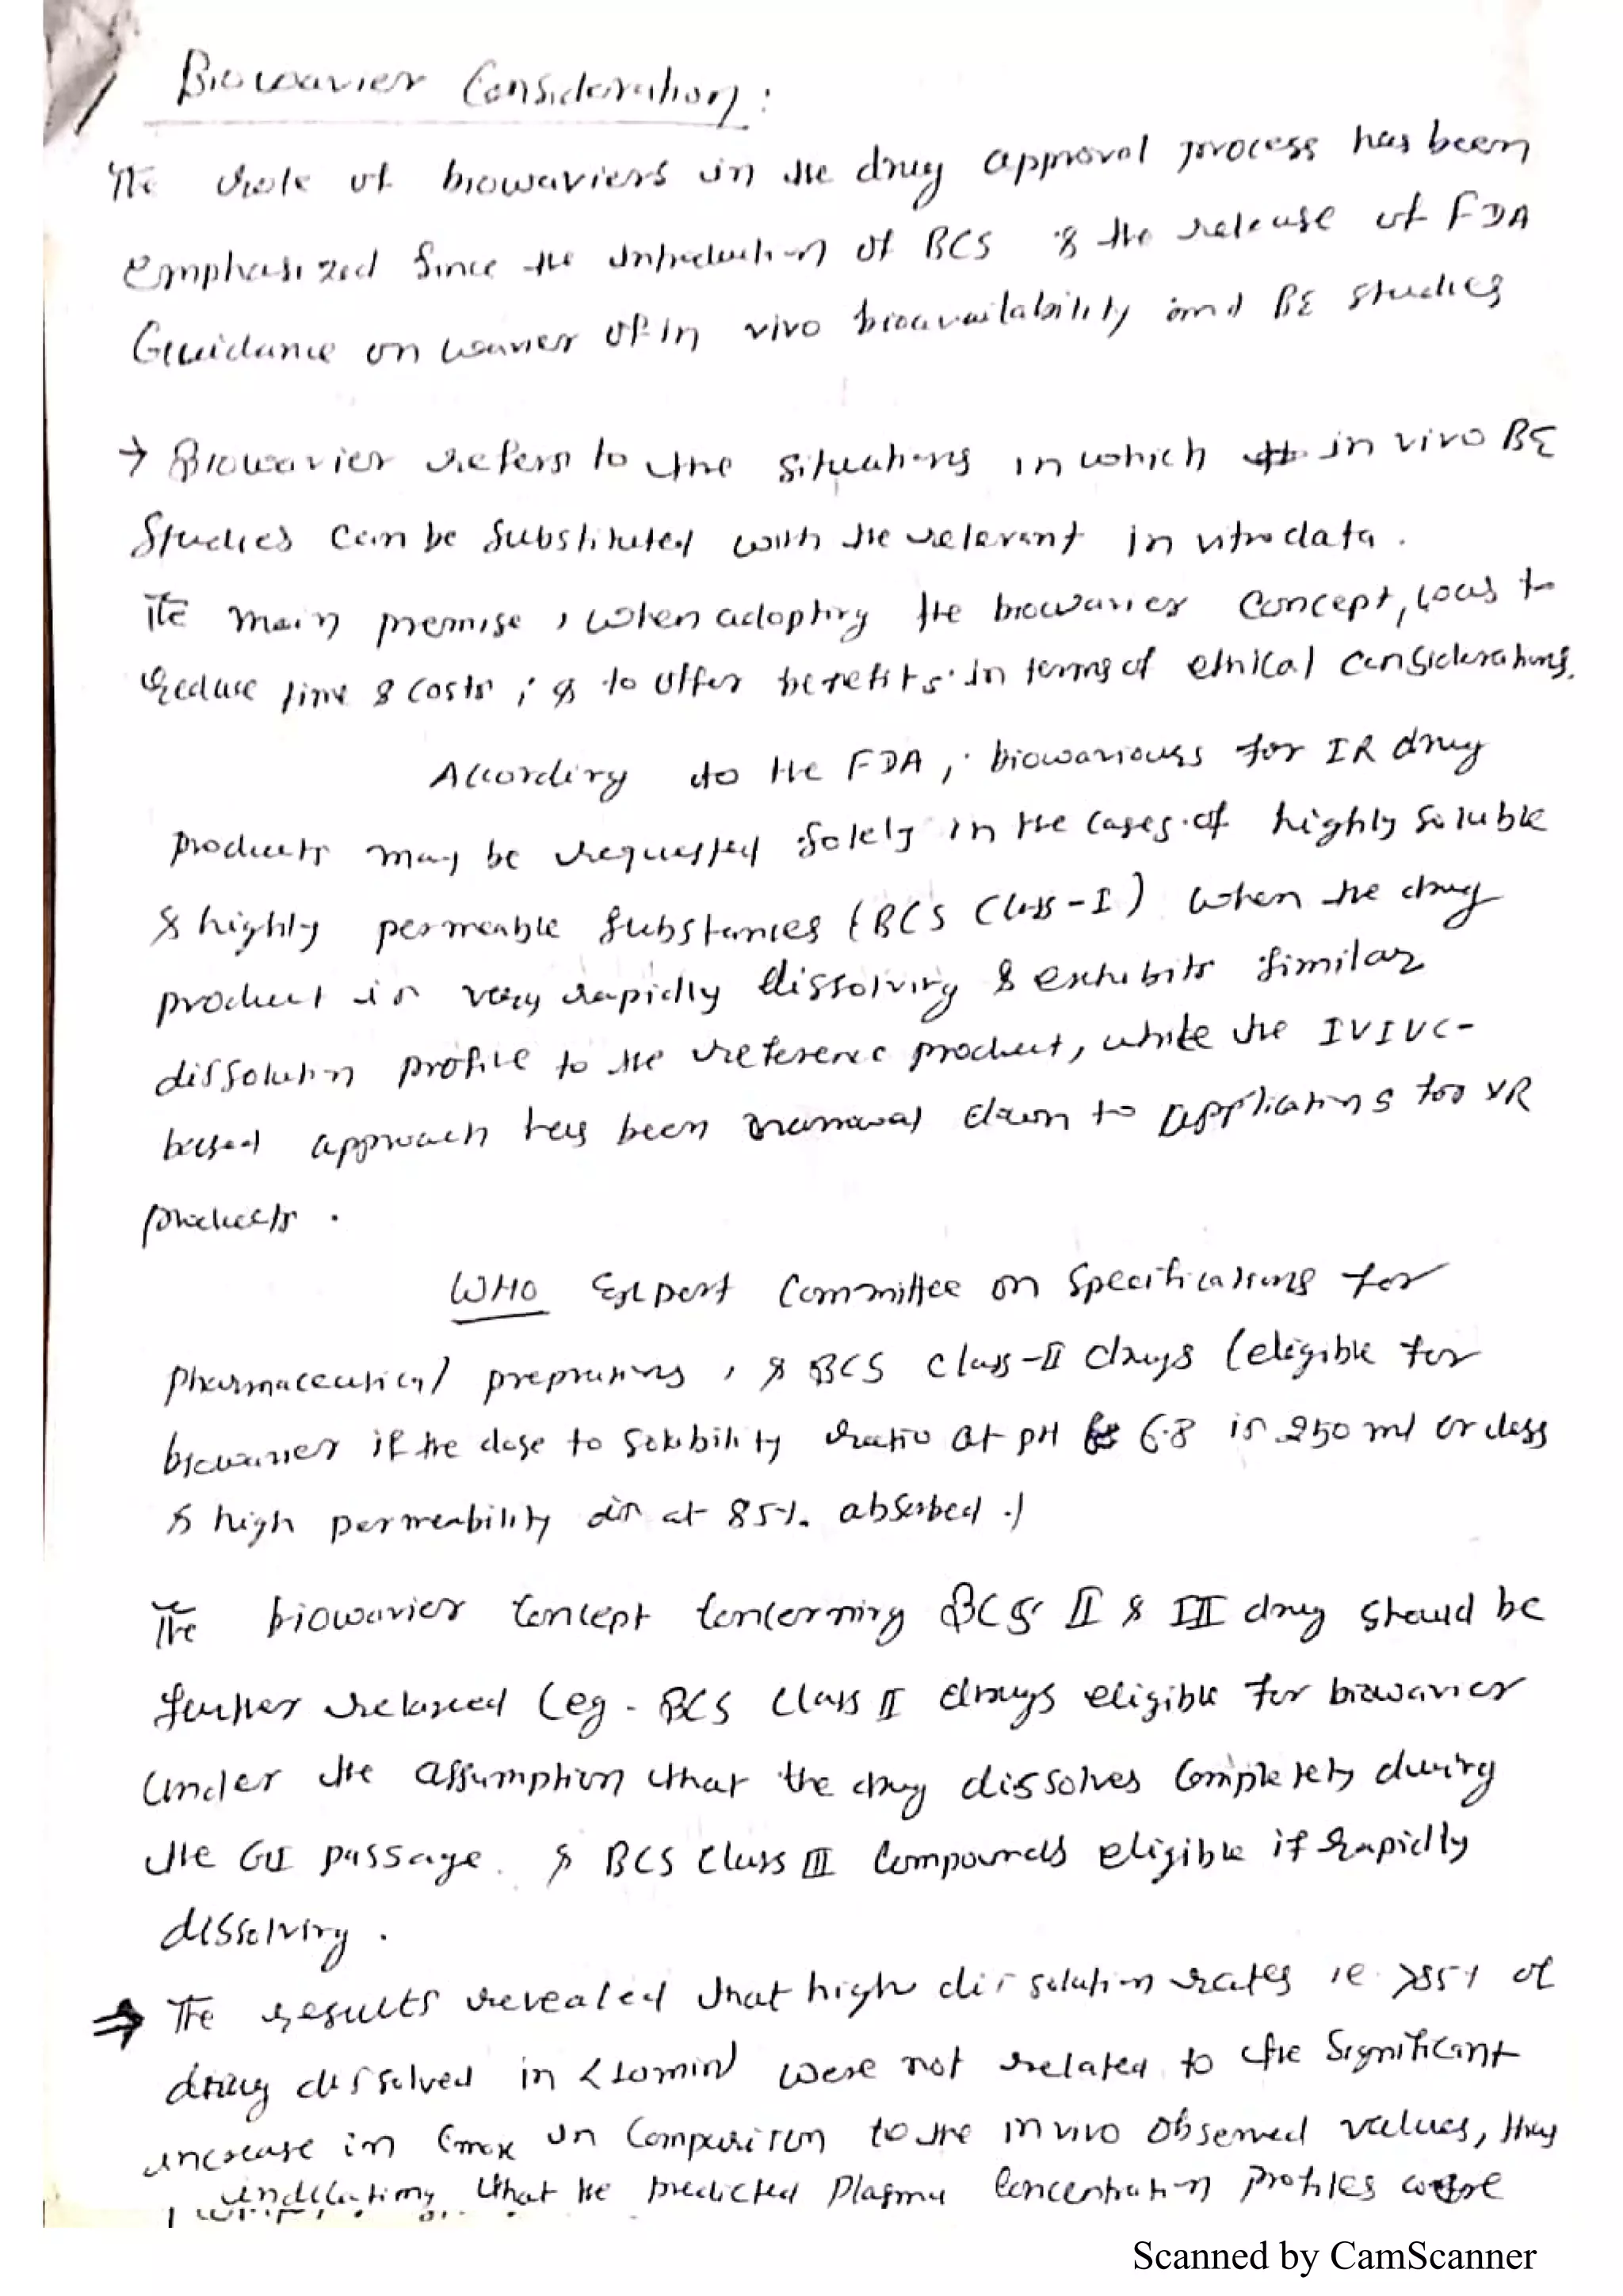 Biowavier Consideration :
The role of biowaviers in the drug approval process has been
emphasized Since the introduction of BCS & the release of FDA
Guidance on wavier of in vivo bioavailability and BE studies
→ Biowavier refers to the situations in which in vivo BE
Studies can be Substituted with the relevant in vitro data .
The main premise , when adopting the biowavier concept, was to
reduce time & costs ; & to offer benefits in terms of ethical considerations.
According to the FDA , for IR drug
products may be requested solely in the cases of highly soluble
& highly permeable substances (BCS Class-I) when the drug
product is very rapidly dissolving & exhibits similar
dissolution profile to the reference product, while the IVIVC-
based approach has been down to applications for
products .
WHO Expert Committee on Specifications for
pharmaceutical , & BCS class-II drugs (eligible for
biowavier if the dose to solubility ratio at pH 6.8 is 250 ml or less
& high permeability is at 85%. absorbed .)
The biowavier concept concerning BCS II & III drug should be
further relaxed (eg - BCS Class II drugs eligible for biowavier
under the assumption that the drug dissolves completely during
the GI passage . & BCS Class III compounds eligible if rapidly
dissolving .
⇒ The results revealed that high dissolution rates ie >85% of
drug dissolved in <10min were not related to the significant
increase in Cmax in comparison to the in vivo observed values, thus
that the predicted plasma concentration profiles were
Scanned by CamScanner